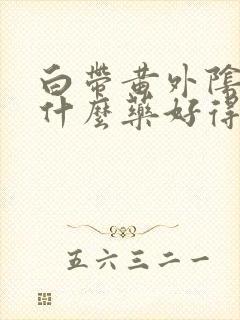 白帶黄外陰
什麼藥好得
五六三二一